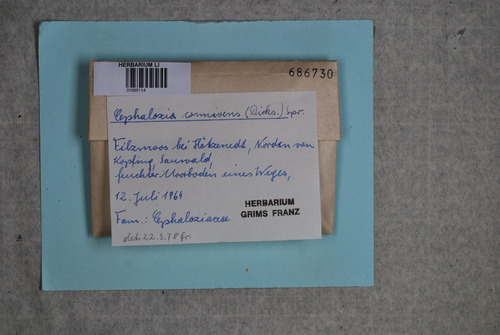 HERBARIUM LI
686730
Cephalozia connivens (Dicks.) Spr.
Filzmoos bei Hötzenedt, Norden von
Kopfing, Sauwald,
feuchter Moorboden eines Weges,
12. Juli 1964
Fam.: Cephaloziaceae
HERBARIUM
GRIMS FRANZ
22.3.78